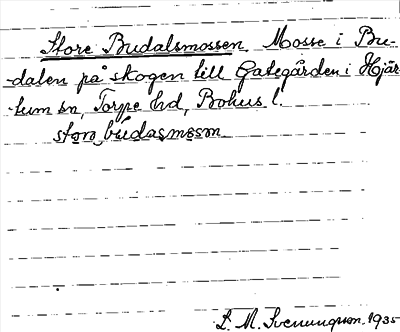 Store Budalsmossen. Mosse i Bu-
-dalen på skogen till Gategården i Hjär
-tum sn, Torpe hd, Bohus l.
store bu̇dasmåsən
L. M. Svenungsson. 1935